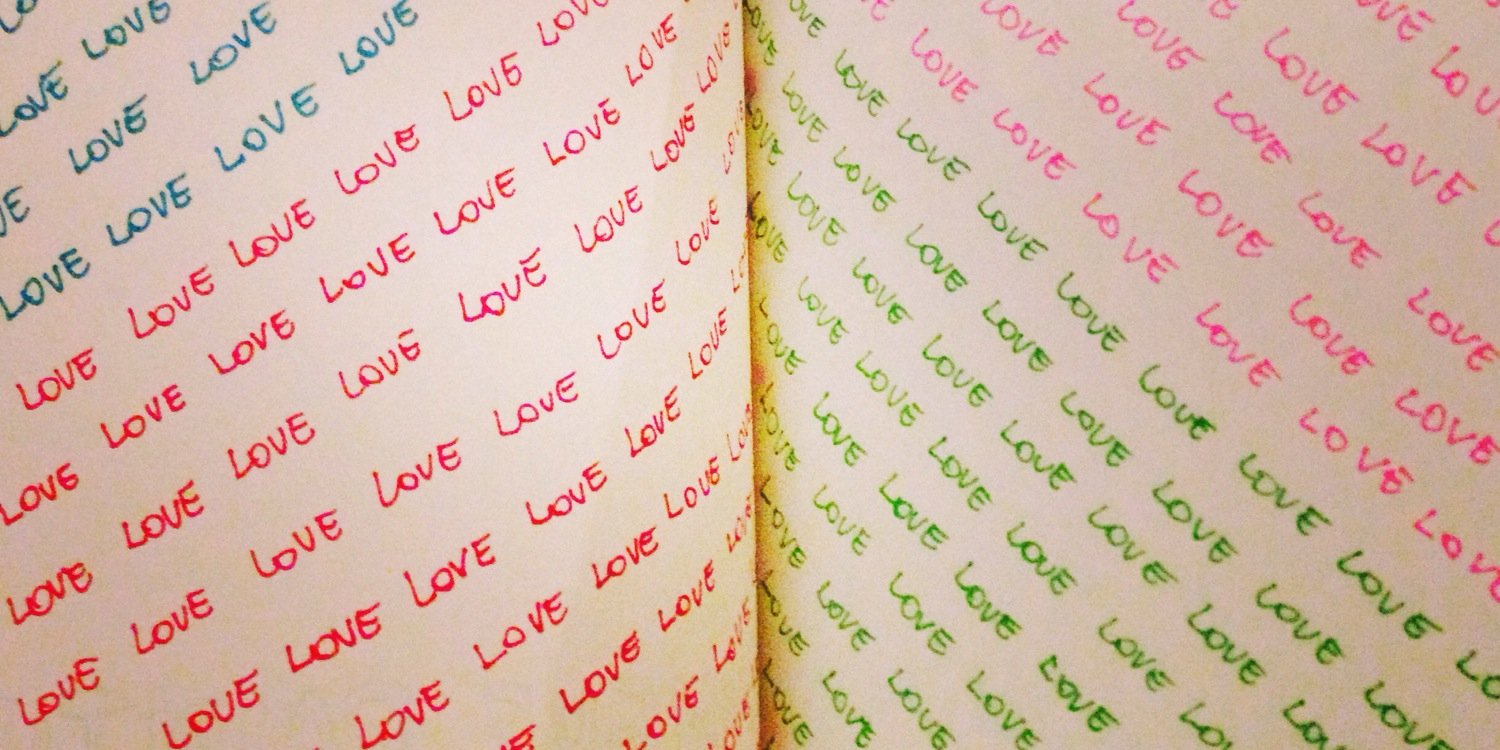 LOVE LOVE
LOVE LOVE
LOVE LOVE LOVE LOVE
LOVE LOVE LOVE LOVE LOVE LOVE
LOVE LOVE LOVE LOVE LOVE LOVE LOVE
LOVE LOVE LOVE LOVE LOVE LOVE LOVE LOVE
LOVE LOVE LOVE LOVE LOVE LOVE LOVE LOVE
LOVE LOVE LOVE LOVE LOVE LOVE
LOVE LOVE LOVE LOVE
LOVE LOVE LOVE
LOVE LOVE
LOVE
LOVE LOVE
LOVE LOVE
LOVE LOVE LOVE LOVE
LOVE LOVE LOVE LOVE LOVE
LOVE LOVE LOVE LOVE LOVE LOVE
LOVE LOVE LOVE LOVE LOVE LOVE LOVE LOVE
LOVE LOVE LOVE LOVE LOVE LOVE LOVE LOVE LOVE
LOVE LOVE LOVE LOVE LOVE LOVE LOVE LOVE
LOVE LOVE LOVE LOVE LOVE LOVE LOVE
LOVE LOVE LOVE LOVE LOVE
LOVE LOVE LOVE LOVE
LOVE LOVE LOVE
LOVE LOVE
LOVE